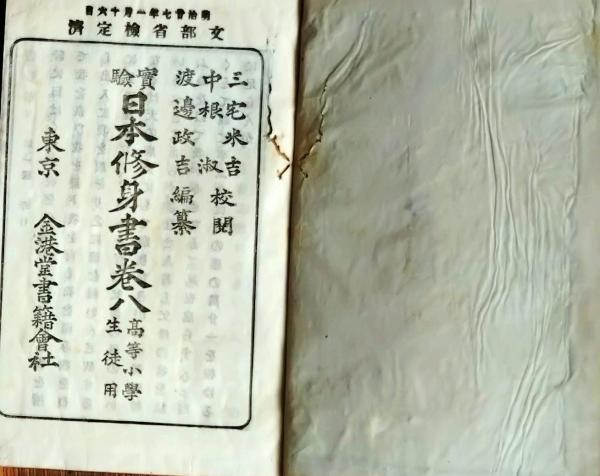 明治廿七年一月十六日
文部省檢定濟
三宅米吉
中根淑校閲
渡邊政吉編纂
實驗
日本修身書卷八
高等小學
生徒用
東京 金港堂書籍會社